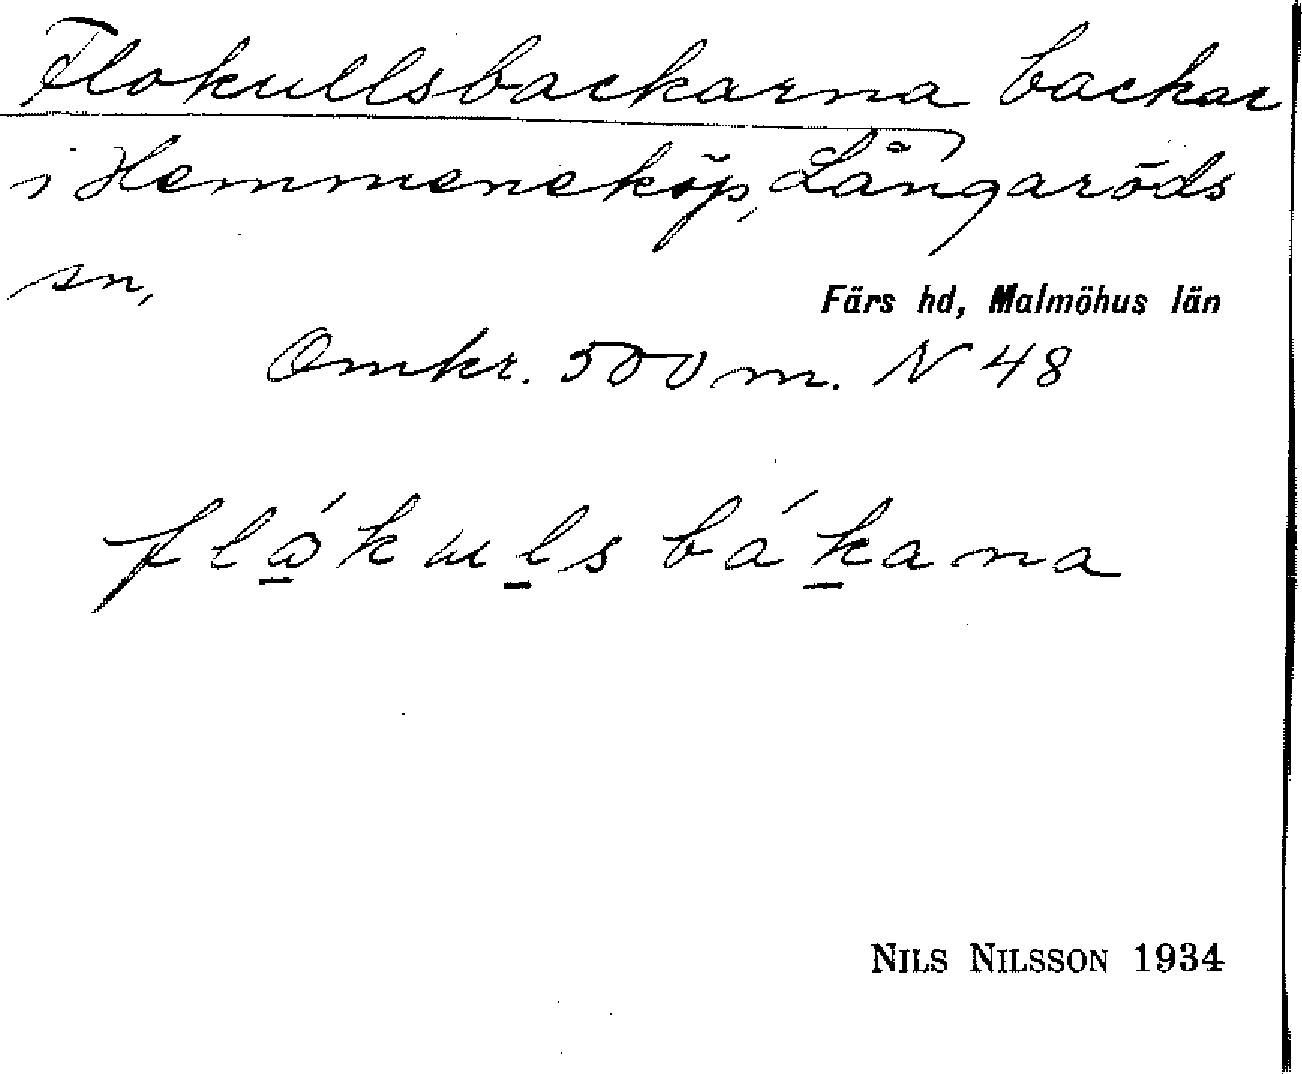 Flokullsbackarna backar
i Hemmeneköp, Långaröds
sn,
Färs hd, Malmöhus län
Omkr. 500 m. N 48
fló̱kuḻsbáḵana
NILS NILSSON 1934